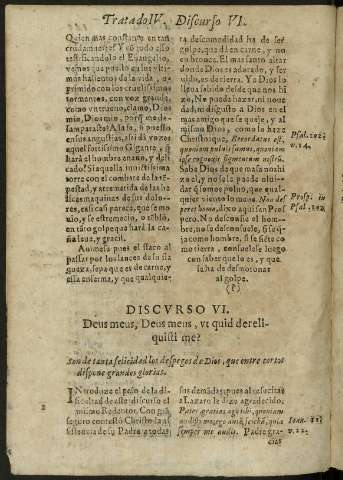 Tratado IV. Discurso VI.
Quien mas constante en tan
crudamente? Y có todo esso
testificando lo el Euangelio,
vemos que puesto en los vlti-
mos halientos de la vida, o-
primido con los cruelissimos
tormentos, con voz grande,
como vn trueno, clama, Dios
mio, Dios mio, porq̃ me de-
samparaste? Assi
en sus angustias, si dà voces
aquel fortissimo Gigante, q̃
harà el hombre enano, y deli-
cado? Si aquella inuictissima
torre con el combate de la tẽ-
pestad, y arremetida de las be-
licas maquinas de sus dolo-
res, casi casi parece, que se mo-
uio, y se estremecio, o tẽblò,
en tãto golpe que harà la ca-
ña leue, y gracil.
Auemos pues el flaco al
passar por los lances de su fla-
queza, sepa que es de carne, y
essa enferma, y que qualquie-
ra descomodidad ha de ser
golpe, que dà en carne, y no
en bronce. El mas santo altar
donde Dios es adorado, y ser
uido, es de tierra. Ya Dios lo
llora sabido desde que nos hi
zo, No puede hazer, ni noue-
dad, ni disgusto a Dios en el
mas amigo que se quexe, y al
mismo Dios, como lo haze
Christo que, Recordatus est,
quoniam puluis sumus, quoniam
ipse cognouit figmentum nostrũ.
Sabe Dios de que massa nos hi
zo, y no se le puede oluí-
dar q̃ somos poluo, que qual-
quier viento lo mueue. Non de-
peret homo, dixo aqui san Pros
pero. No desconfie el hom-
bre, no se desconsuele, si se q̃e
ja como hombre, si se siẽte co-
mo tierra, consuelese luego
con saber que lo es, y que
se ha de desmoronar
al golpe.
(?)
Psal. 102.
v. 14.
Prosp. in
Psal. 102.
DISCVRSO VI.
Deus meus, Deus meus, vt quid dereli-
quisti me?
Son de tanta felicidad los despegos de Dios, que entre cortos
dispone grandes glorias.
INtroduze el peso de la di-
ficultad de este discurso el
mismo Redentor. Con grã
seguro contestò Christo la a-
sistencia de su Padre a todas
sus demãdas; pues al resucitar
a Lazaro le dixo agradecido;
Pater gratias ago tibi, quoniam
audisti me, ego autẽ sciebã, quia
semper me audis. Padre gra-
cias
Ioan. 11.
v. 22.